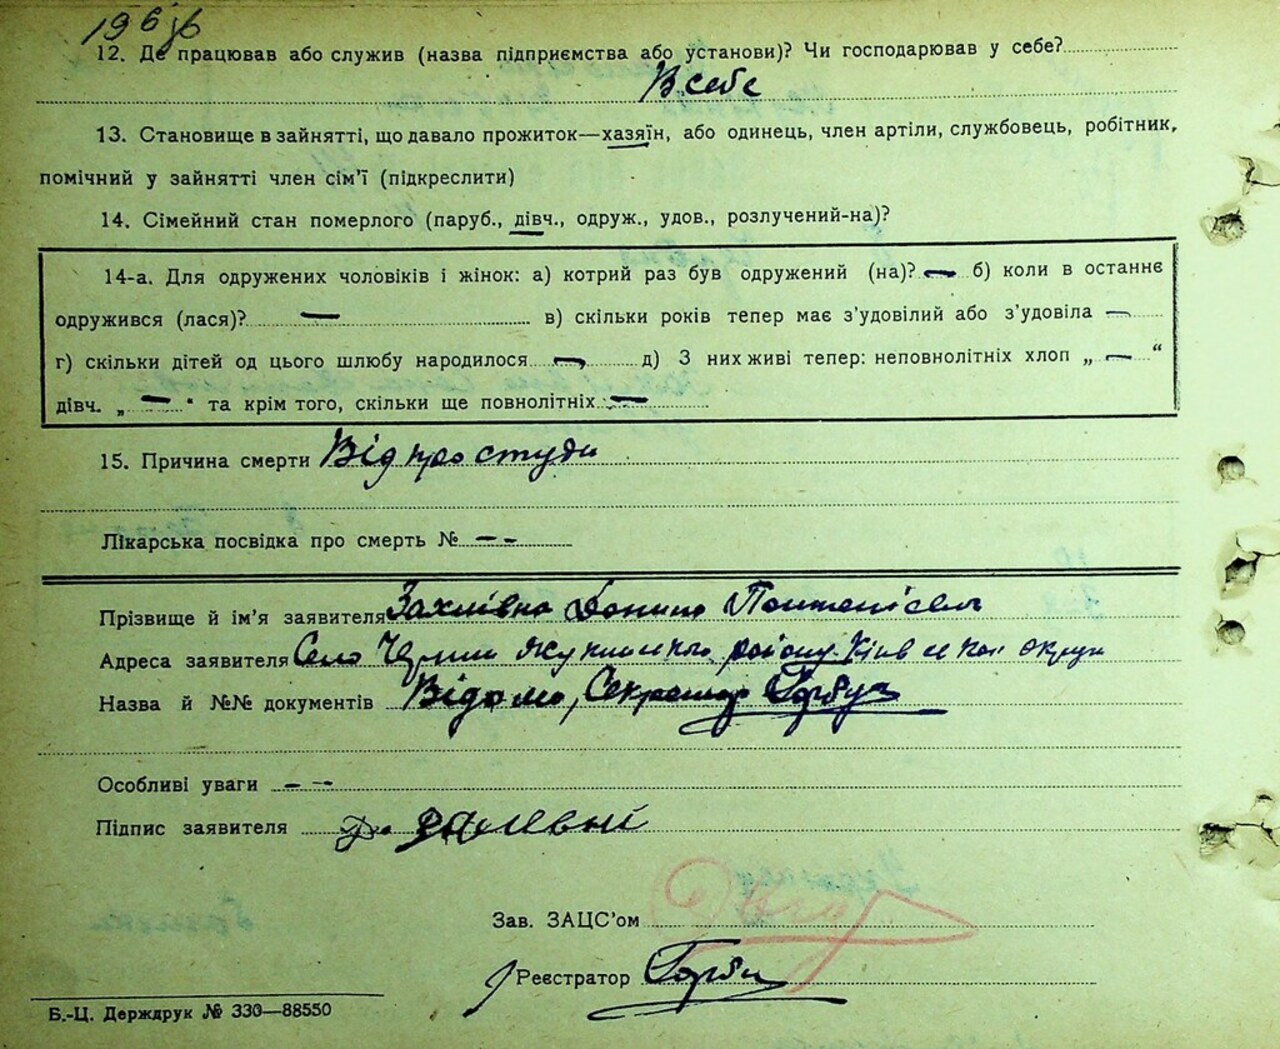 12. Де працював або служив (назва підприємства або установи)? Чи господарював у себе?
В себе
13. Становище в зайнятті, що давало прожиток—хазяїн, або одинець, член артіли, службовець, робітник,
помічний у зайнятті член сім'ї (підкреслити)
14. Сімейний стан померлого (паруб., дівч., одруж., удов., розлучений-на)?
14-а. Для одружених чоловіків і жінок: а) котрий раз був одружений (на)? — б) коли в останнє
одружився (лася)? — в) скільки років тепер має з'удовілий або з'удовіла —
г) скільки дітей од цього шлюбу народилося — д) З них живі тепер: неповнолітніх хлоп „ — “
дівч. „ — “ та крім того, скільки ще повнолітніх —
15. Причина смерти Від простуди
Лікарська посвідка про смерть № — -
Прізвище й ім'я заявителя
Адреса заявителя Село району Київської округи
Назва й №№ документів Відомо, Секретар Горбуч
Особливі уваги — --
Підпис заявителя
Зав. ЗАЦС'ом
Реєстратор
Б.-Ц. Держдрук № 330—88550